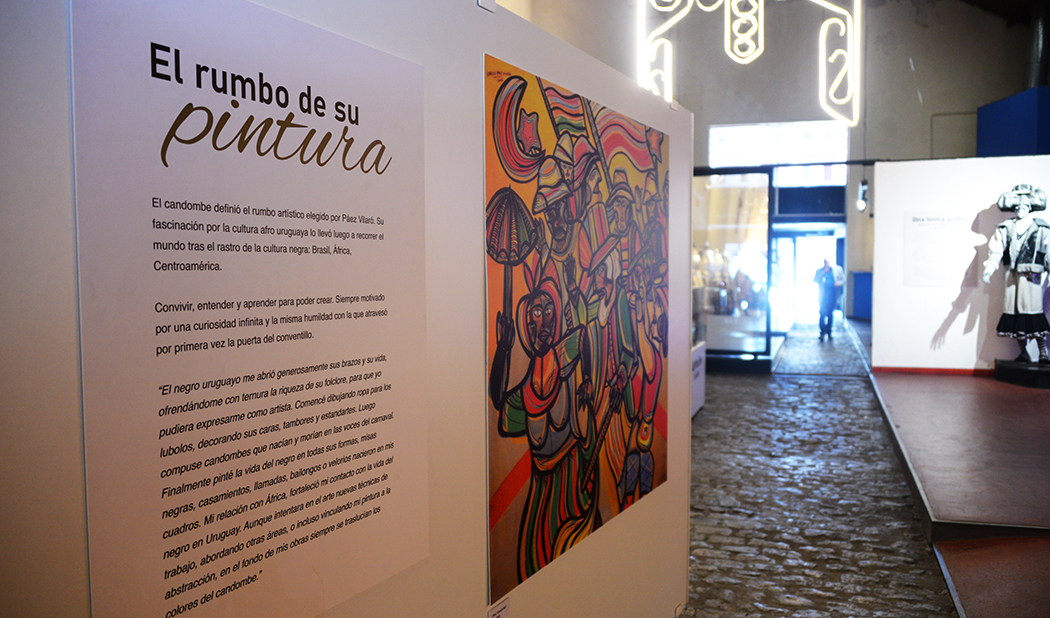 El rumbo de su
pintura
El candombe definió el rumbo artístico elegido por Páez Vilaró. Su
fascinación por la cultura afro uruguaya lo llevó luego a recorrer el
mundo tras el rastro de la cultura negra: Brasil, África,
Centroamérica.
Convivir, entender y aprender para poder crear. Siempre motivado
por una curiosidad infinita y la misma humildad con la que atravesó
por primera vez la puerta del conventillo.
"El negro uruguayo me abrió generosamente sus brazos y su vida,
ofrendándome con ternura la riqueza de su folclore, para que yo
pudiera expresarme como artista. Comencé dibujando ropa para los
lubolos, decorando sus caras, tambores y estandartes. Luego
compuse candombes que nacían y morían en las voces del carnaval.
Finalmente pinté la vida del negro en todas sus formas, misas
negras, casamientos, llamadas, bailongos o velorios nacieron en mis
cuadros. Mi relación con África, fortaleció mi contacto con la vida del
negro en Uruguay. Aunque intentara en el arte nuevas técnicas de
trabajo, abordando otras áreas, o incluso vinculando mi pintura a la
abstracción, en el fondo de mis obras siempre se traslucían los
colores del candombe."